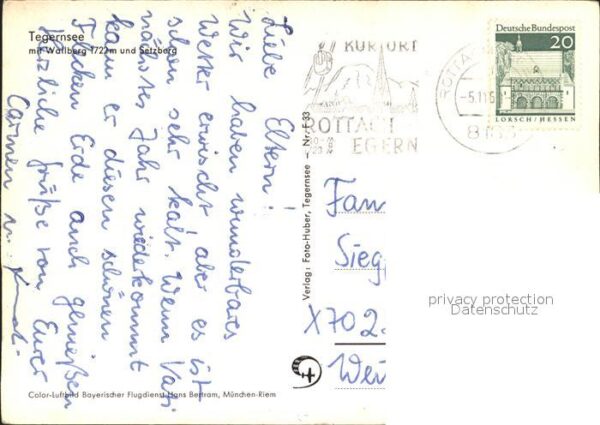 Tegernsee
mit Wallberg 1722 m und Setzberg
Liebe Eltern!
Wir haben wunderbares
Wetter erwischt, aber es ist
schon sehr kalt. Wenn Vati
nächstes Jahr wiederkommt
kann er diesen schönen
Flecken Erde auch genießen
Herzliche Grüße von Eurer
Carmen u.
Color-Luftbild Bayerischer Flugdienst Hans Bertram, München-Riem
Verlag: Foto-Huber, Tegernsee – Nr. F 33
KURORT
ROTTACH
EGERN
ROTTA
-5.11.6
Deutsche Bundespost
20
LORSCH/HESSEN
Fam
Sieg
X702
Wei
privacy protection
Datenschutz